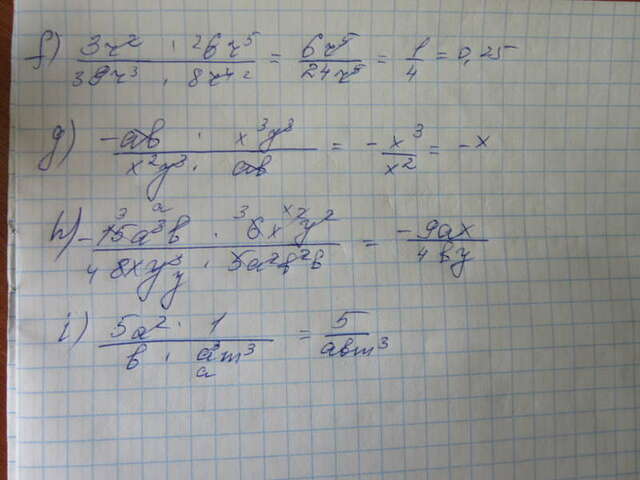 f) 3r² · 26r⁵ / 39r³ · 8r⁴ 2 = 6r⁵ / 24r⁵ = 1/4 = 0,25
g) -ab · x³y³ / x²y³ · ab = - x³/x² = -x
h) -15a³b · 6x²y² / 8xy³ · 5a²b²b = -9ax / 4by
i) 5a² · 1 / b · a³m³ = 5 / abm³